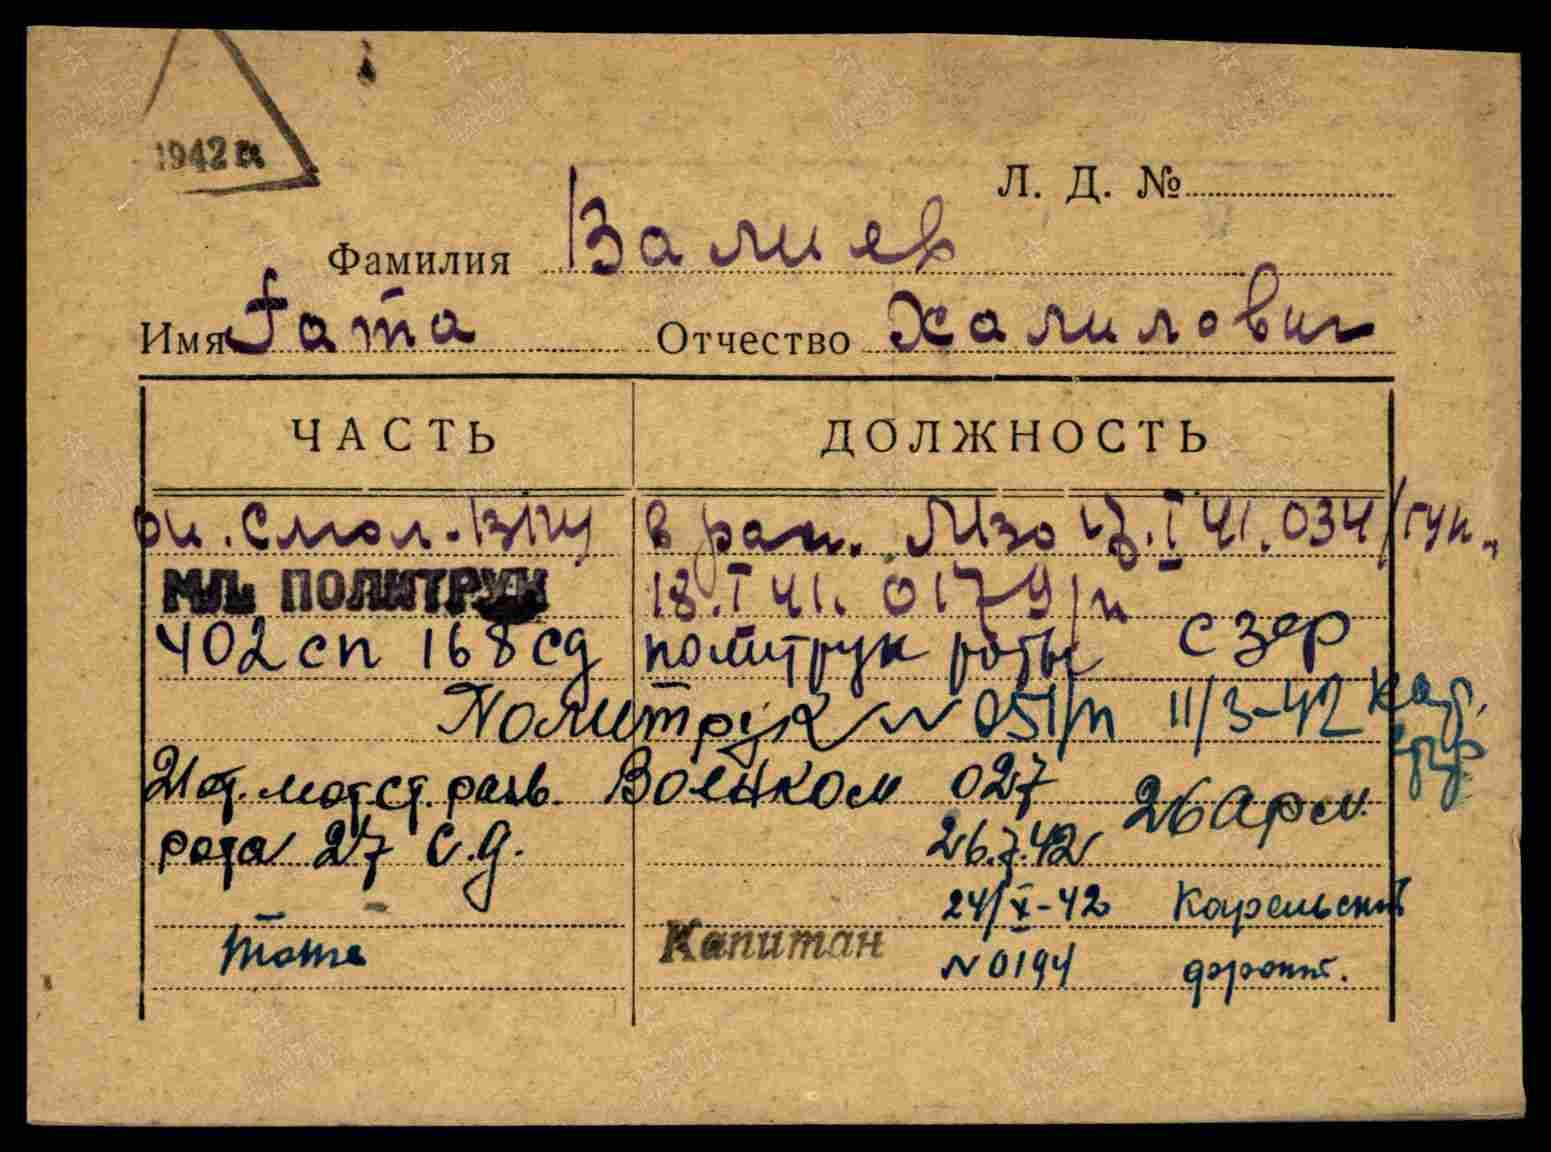 1942 г.
Л. Д. №
Фамилия Валиев
Имя Гата Отчество Халилович
ЧАСТЬ ДОЛЖНОСТЬ
ок. Смол. ВПУ в рап. МВО 13.I 41. 034/гук.
МЛ. ПОЛИТРУК 18.I 41. 0179/п
402 сп 168 сд политрук роты СЗФР
Политрук № 051/п 11/3-42 кар.
21 от. мотст. разв. Военком 027 26 Арм.
рота 27 с.д. 26.7.42
24/X-42 Карельский
тоте Капитан № 0194 фронт.